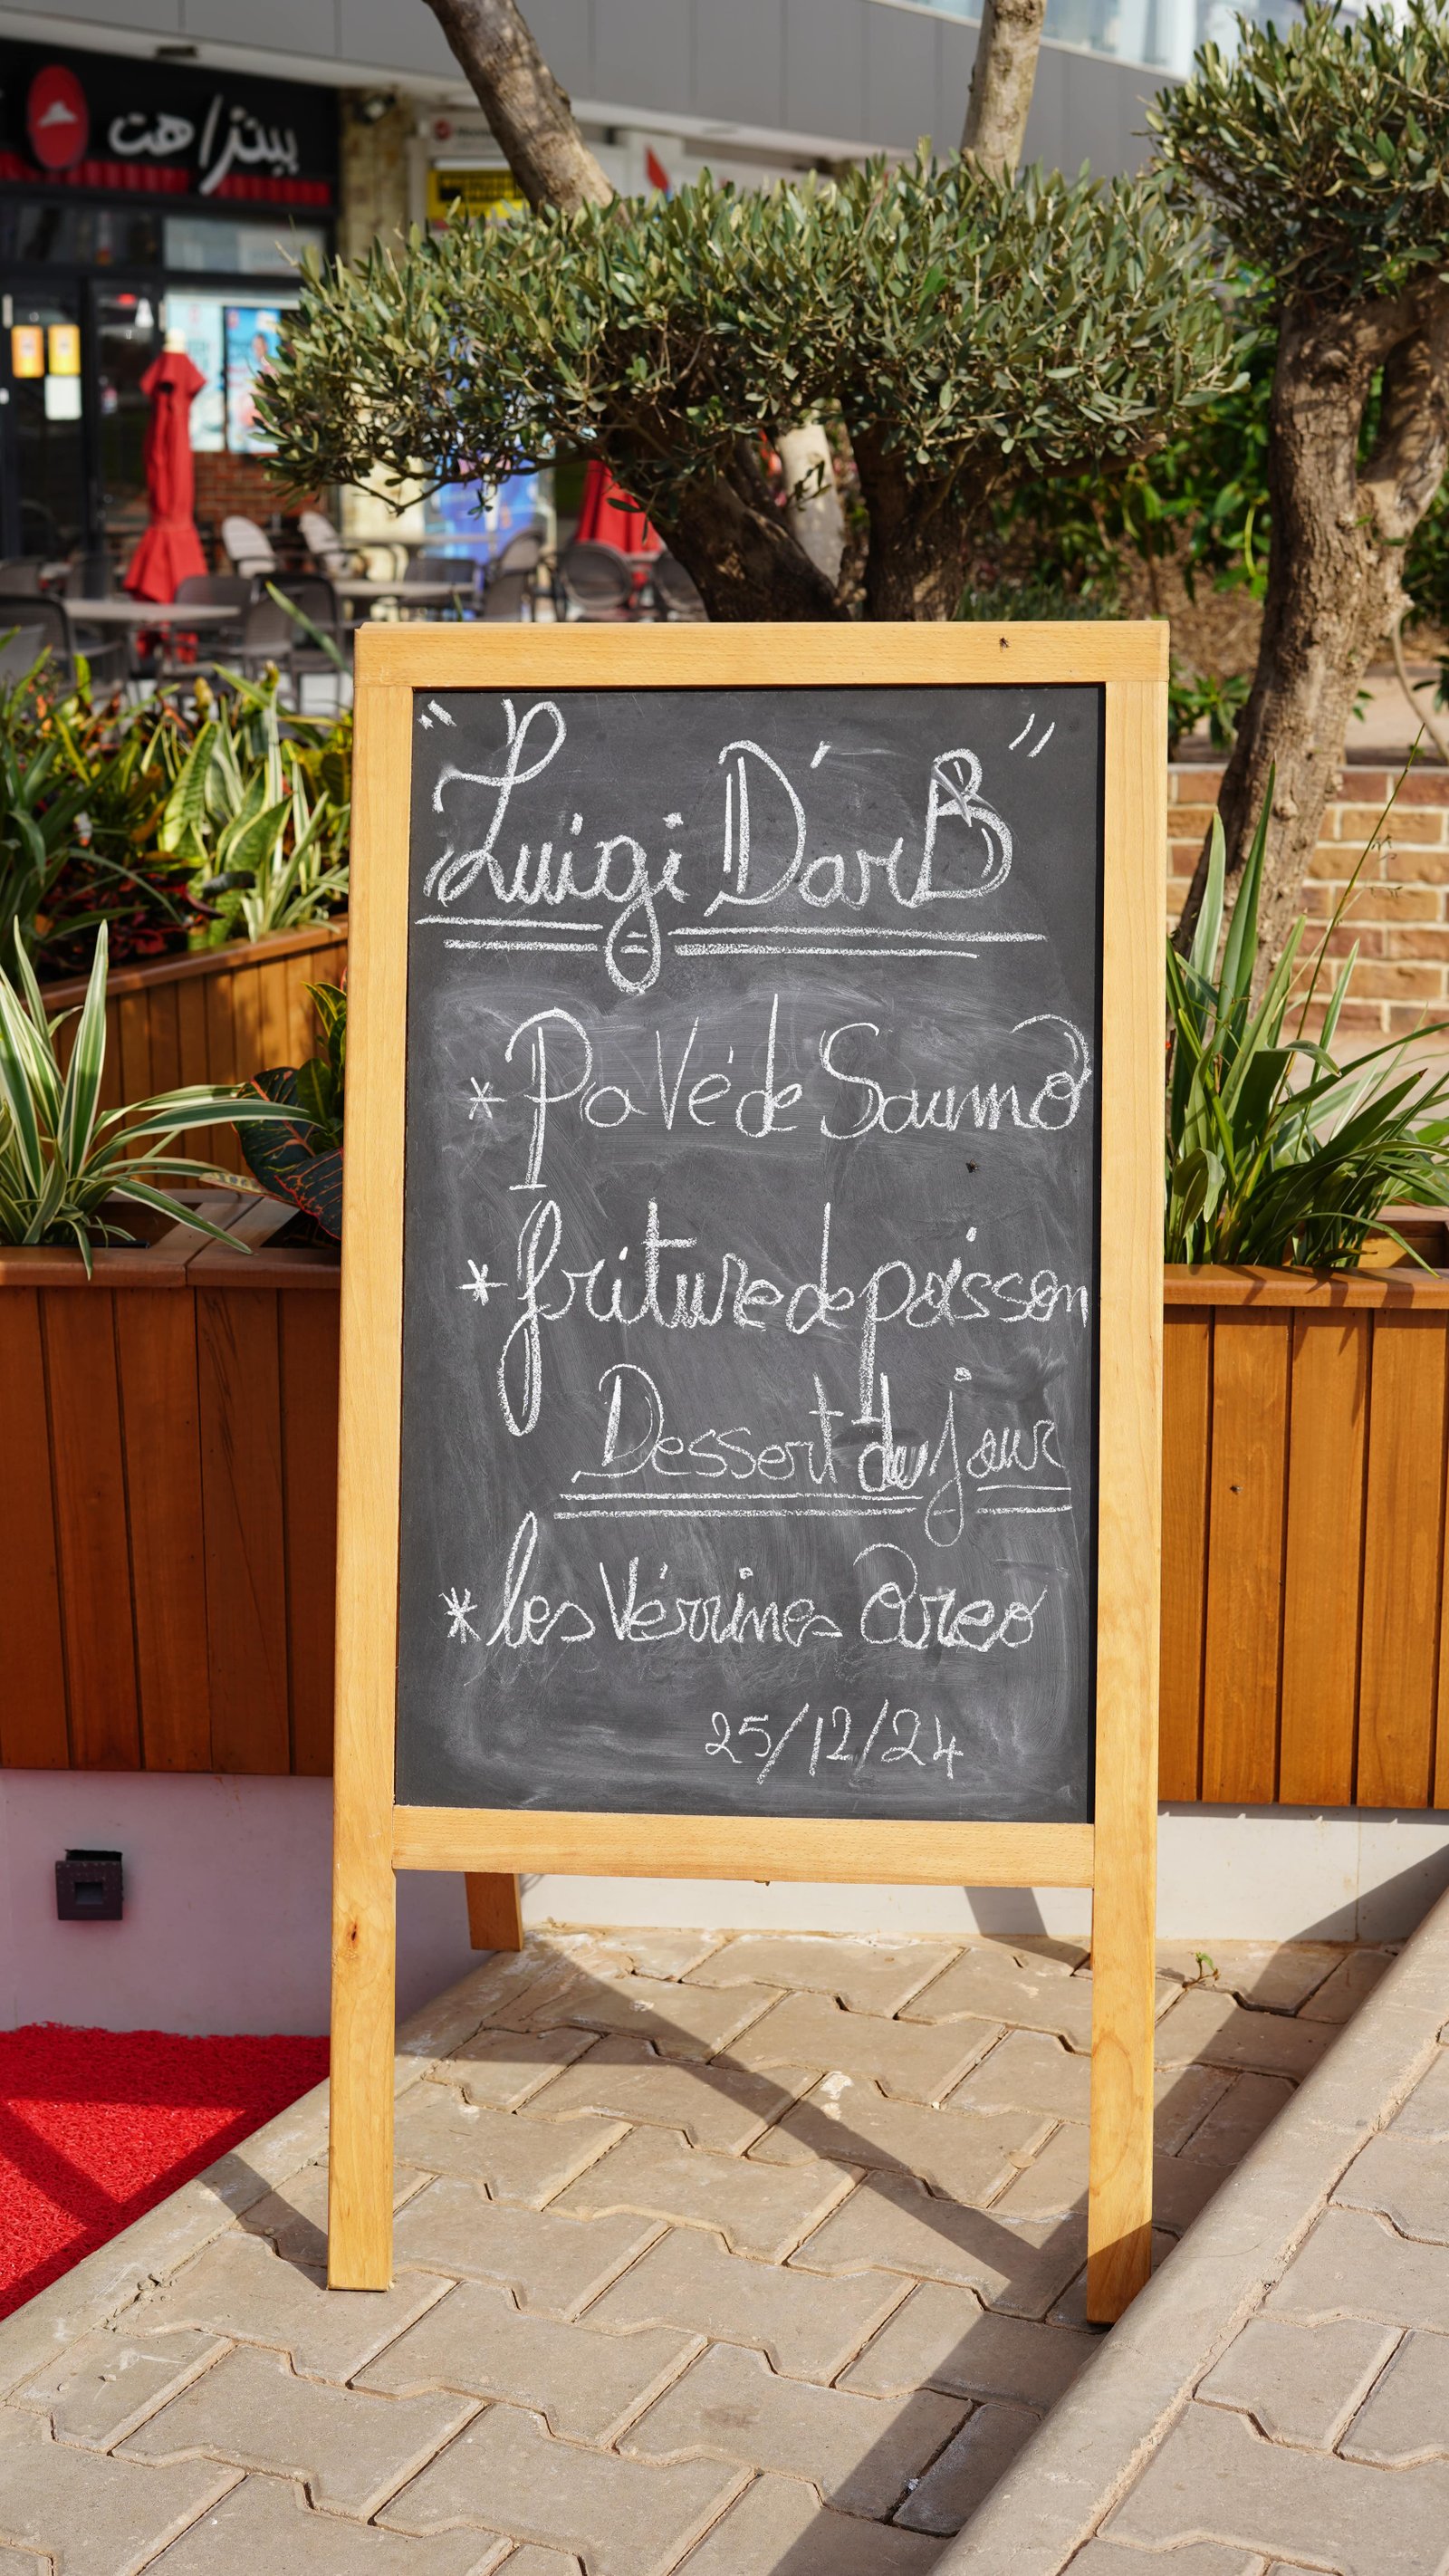 بيتزا هت
"Luigi D'arB"
* PaVé de Saumo
* friture de poisson
Dessert du jour
* les Vérrines Oreo
25/12/24